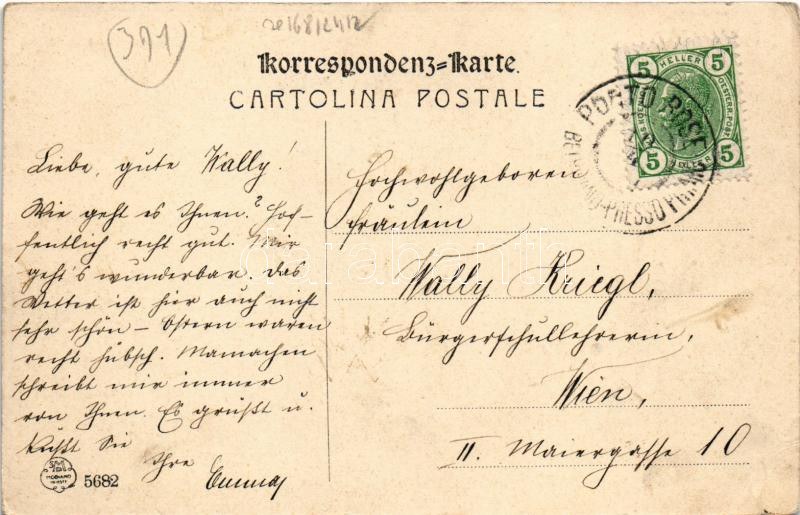 391
Korrespondenz=Karte.
CARTOLINA POSTALE
5 HELLER 5
5 5
PORTO ROSE
Liebe, gute Wally!
Wie geht es Ihnen? Hof-
fentlich recht gut. Mir
geht's wunderbar. Das
Wetter ist hier auch nicht
sehr schön – Ostern waren
recht hübsch. Mamachen
schreibt mir immer
von Ihnen. Es grüßt u.
küßt Sie
Ihre
Emmy
Hochwohlgeboren
Fräulein
Wally Kriegl,
Bürgerschullehrerin,
Wien,
II. Maiergasse 10
5682